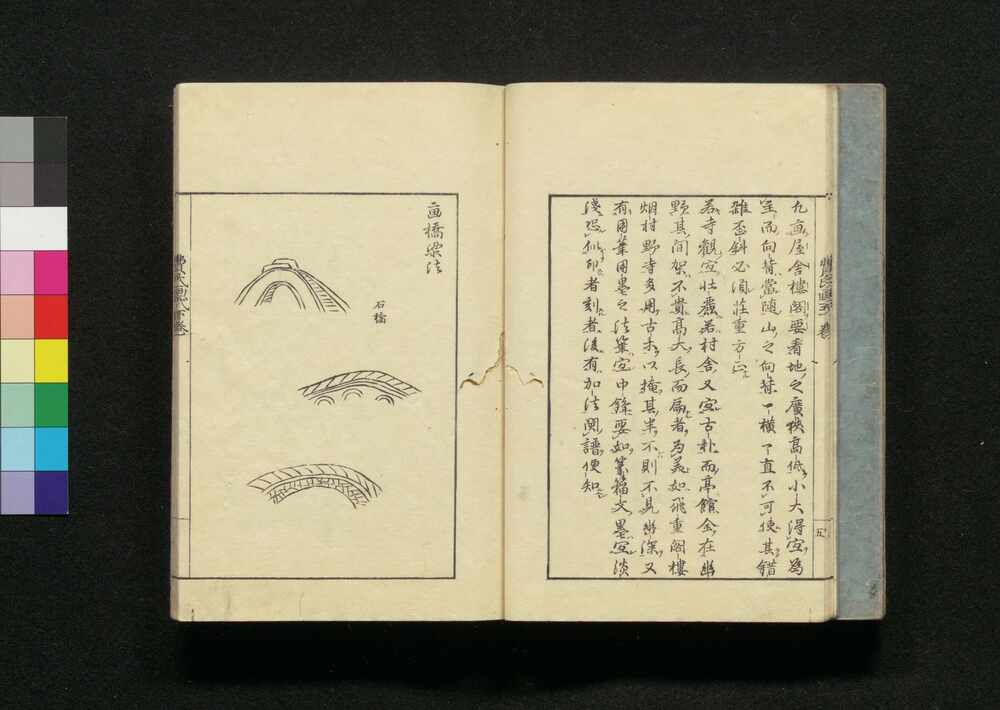 凡画屋舍樓閣要看地之廣狹高低小大得宜為
室而向背當随山之向背一横一直不可使其錯
雜歪斜必須荘重方正
若寺觀宜壮麗若村舎又宜古朴而亭館全在幽
野其間架不貴高大長而扁者為美如飛重閣樓
烟村野寺多用古木以掩其半不則不見幽深又
有用筆用墨之法筆宜中鋒要如篆籀文墨宜淡
淺恐似印者刻者後有加法閲譜便知
五
画橋梁法
石橋